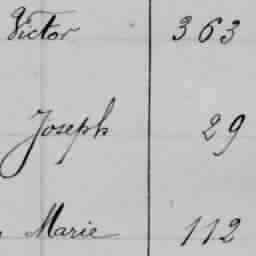 Victor 363
Joseph 29
Marie 112